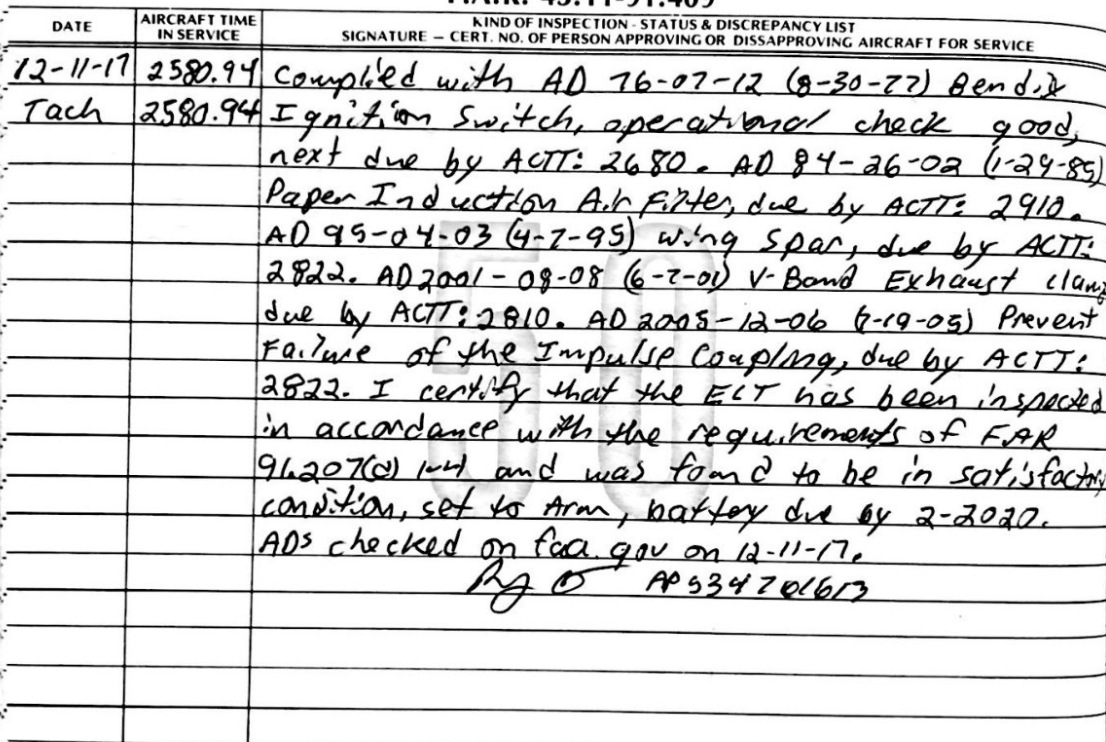 F.A.R. 43.11-91.409
DATE
AIRCRAFT TIME
IN SERVICE
KIND OF INSPECTION - STATUS & DISCREPANCY LIST
SIGNATURE – CERT. NO. OF PERSON APPROVING OR DISSAPPROVING AIRCRAFT FOR SERVICE
12-11-17 2580.94 Complied with AD 76-07-12 (8-30-77) Bendix
Tach 2580.94 Ignition Switch, operational check good,
next due by ACTT: 2680. AD 84-26-02 (1-29-85)
Paper Induction Air Filter, due by ACTT: 2910.
AD 95-04-03 (4-7-95) wing spar, due by ACTT:
2822. AD 2001-08-08 (6-7-01) V-Band Exhaust clamp
due by ACTT: 2810. AD 2005-12-06 (7-19-05) Prevent
Failure of the Impulse Coupling, due by ACTT:
2822. I certify that the ELT has been inspected
in accordance with the requirements of FAR
91.207(d) 1-4) and was found to be in satisfactory
condition, set to Arm, battery due by 2-2020.
ADs checked on faa.gov on 12-11-17.
50